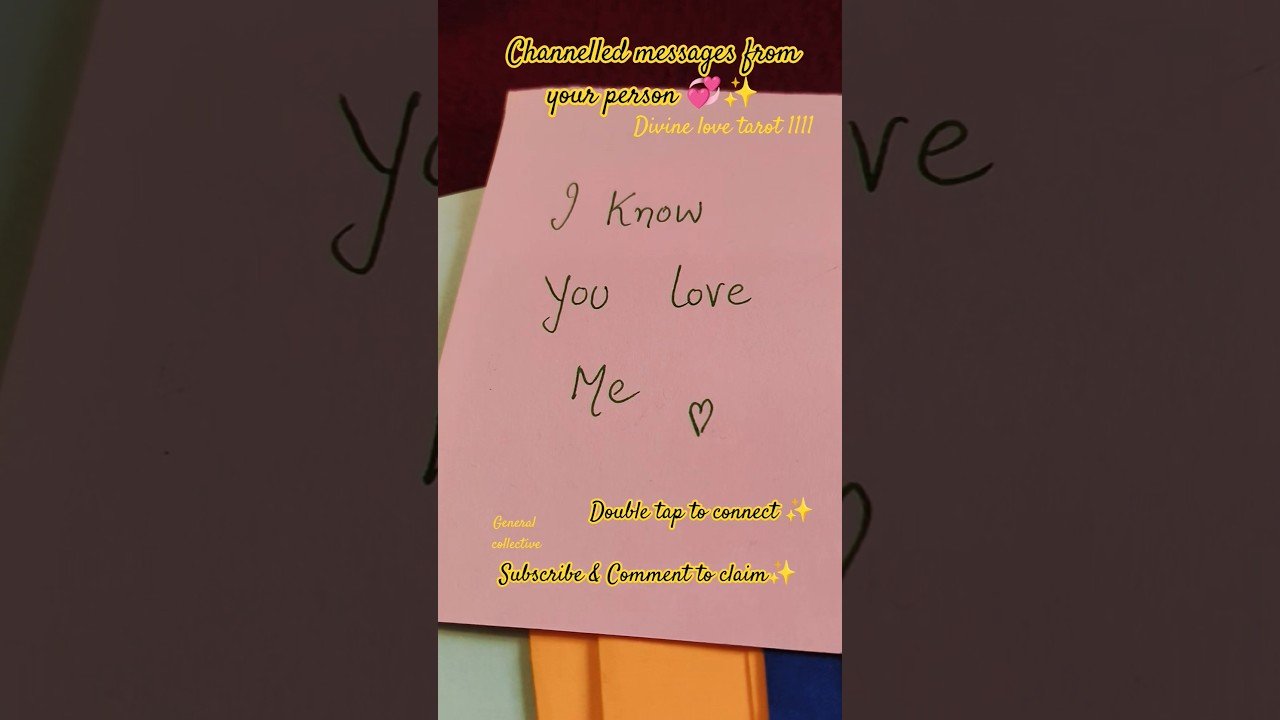 Channelled messages from
your person 💞✨
Divine love tarot 1111
I Know
You love
Me ♡
Double tap to connect ✨
General
collective
Subscribe & Comment to claim✨